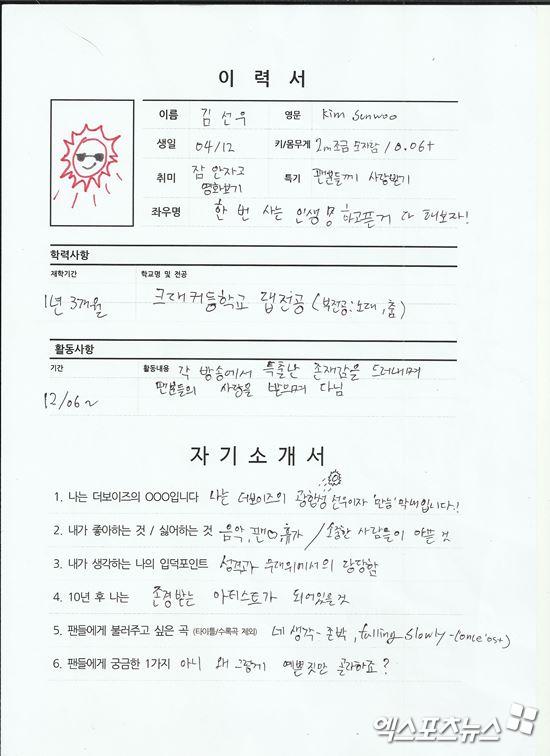 이 력 서
이름 김선우 영문 Kim Sunwoo
생일 04/12 키/몸무게 2m조금 모자람 / 0.06t
취미 잠 안자고 영화보기 특기 팬분들께 사랑받기
좌우명 한 번 사는 인생 뭐 하고픈거 다 해보자!
학력사항
재학기간 학교명 및 전공
1년 3개월 크래커등학교 랩전공 (부전공: 노래, 춤)
활동사항
기간 활동내용 각 방송에서 특출난 존재감을 드러내며
12/06~ 팬분들의 사랑을 받으며 다님
자 기 소 개 서
1. 나는 더보이즈의 OOO입니다 나는 더보이즈의 광합성 선우이자 '만능' 막내입니다.!
2. 내가 좋아하는 것 / 싫어하는 것 음악, 팬♡, 휴가 / 소중한 사람들이 아픈 것
3. 내가 생각하는 나의 입덕포인트 성격과 무대위에서의 당당함
4. 10년 후 나는 존경받는 아티스트가 되어있을것
5. 팬들에게 불러주고 싶은 곡 (타이틀/수록곡 제외) 네 생각 - 존박, falling slowly - (once 'ost)
6. 팬들에게 궁금한 1가지 아니 왜 그렇게 예쁜 짓만 골라하죠?
엑스포츠뉴스